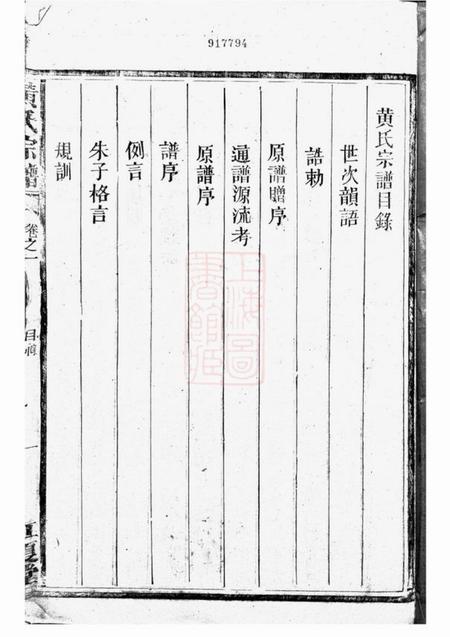 917794
黄氏宗譜目錄
世次韻語
誥勅
原譜贈序
通譜源流考
原譜序
譜序
例言
朱子格言
規訓
黄氏宗譜
卷之一
目錄
一
上海圖書館藏